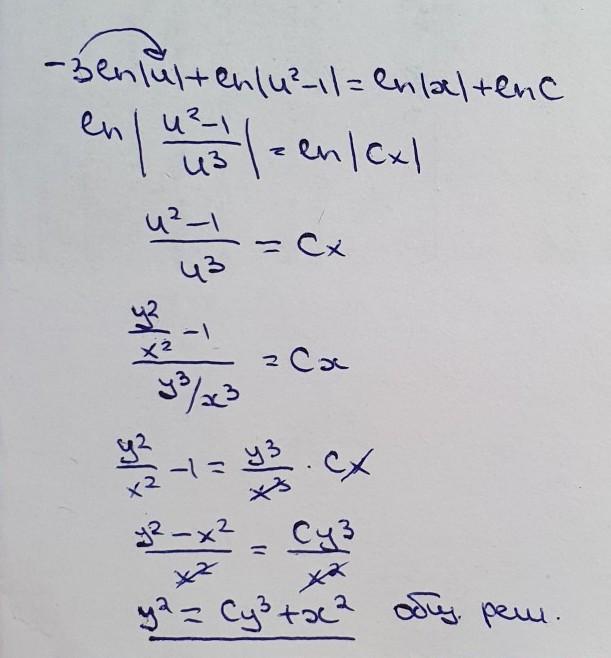 -3 ln|u| + ln|u²-1| = ln|x| + ln C
ln | (u²-1)/u³ | = ln |Cx|
(u²-1)/u³ = Cx
(y²/x² - 1)/(y³/x³) = Cx
y²/x² - 1 = y³/x³ · Cx
(y² - x²)/x² = Cy³/x²
y² = Cy³ + x² общ. реш.